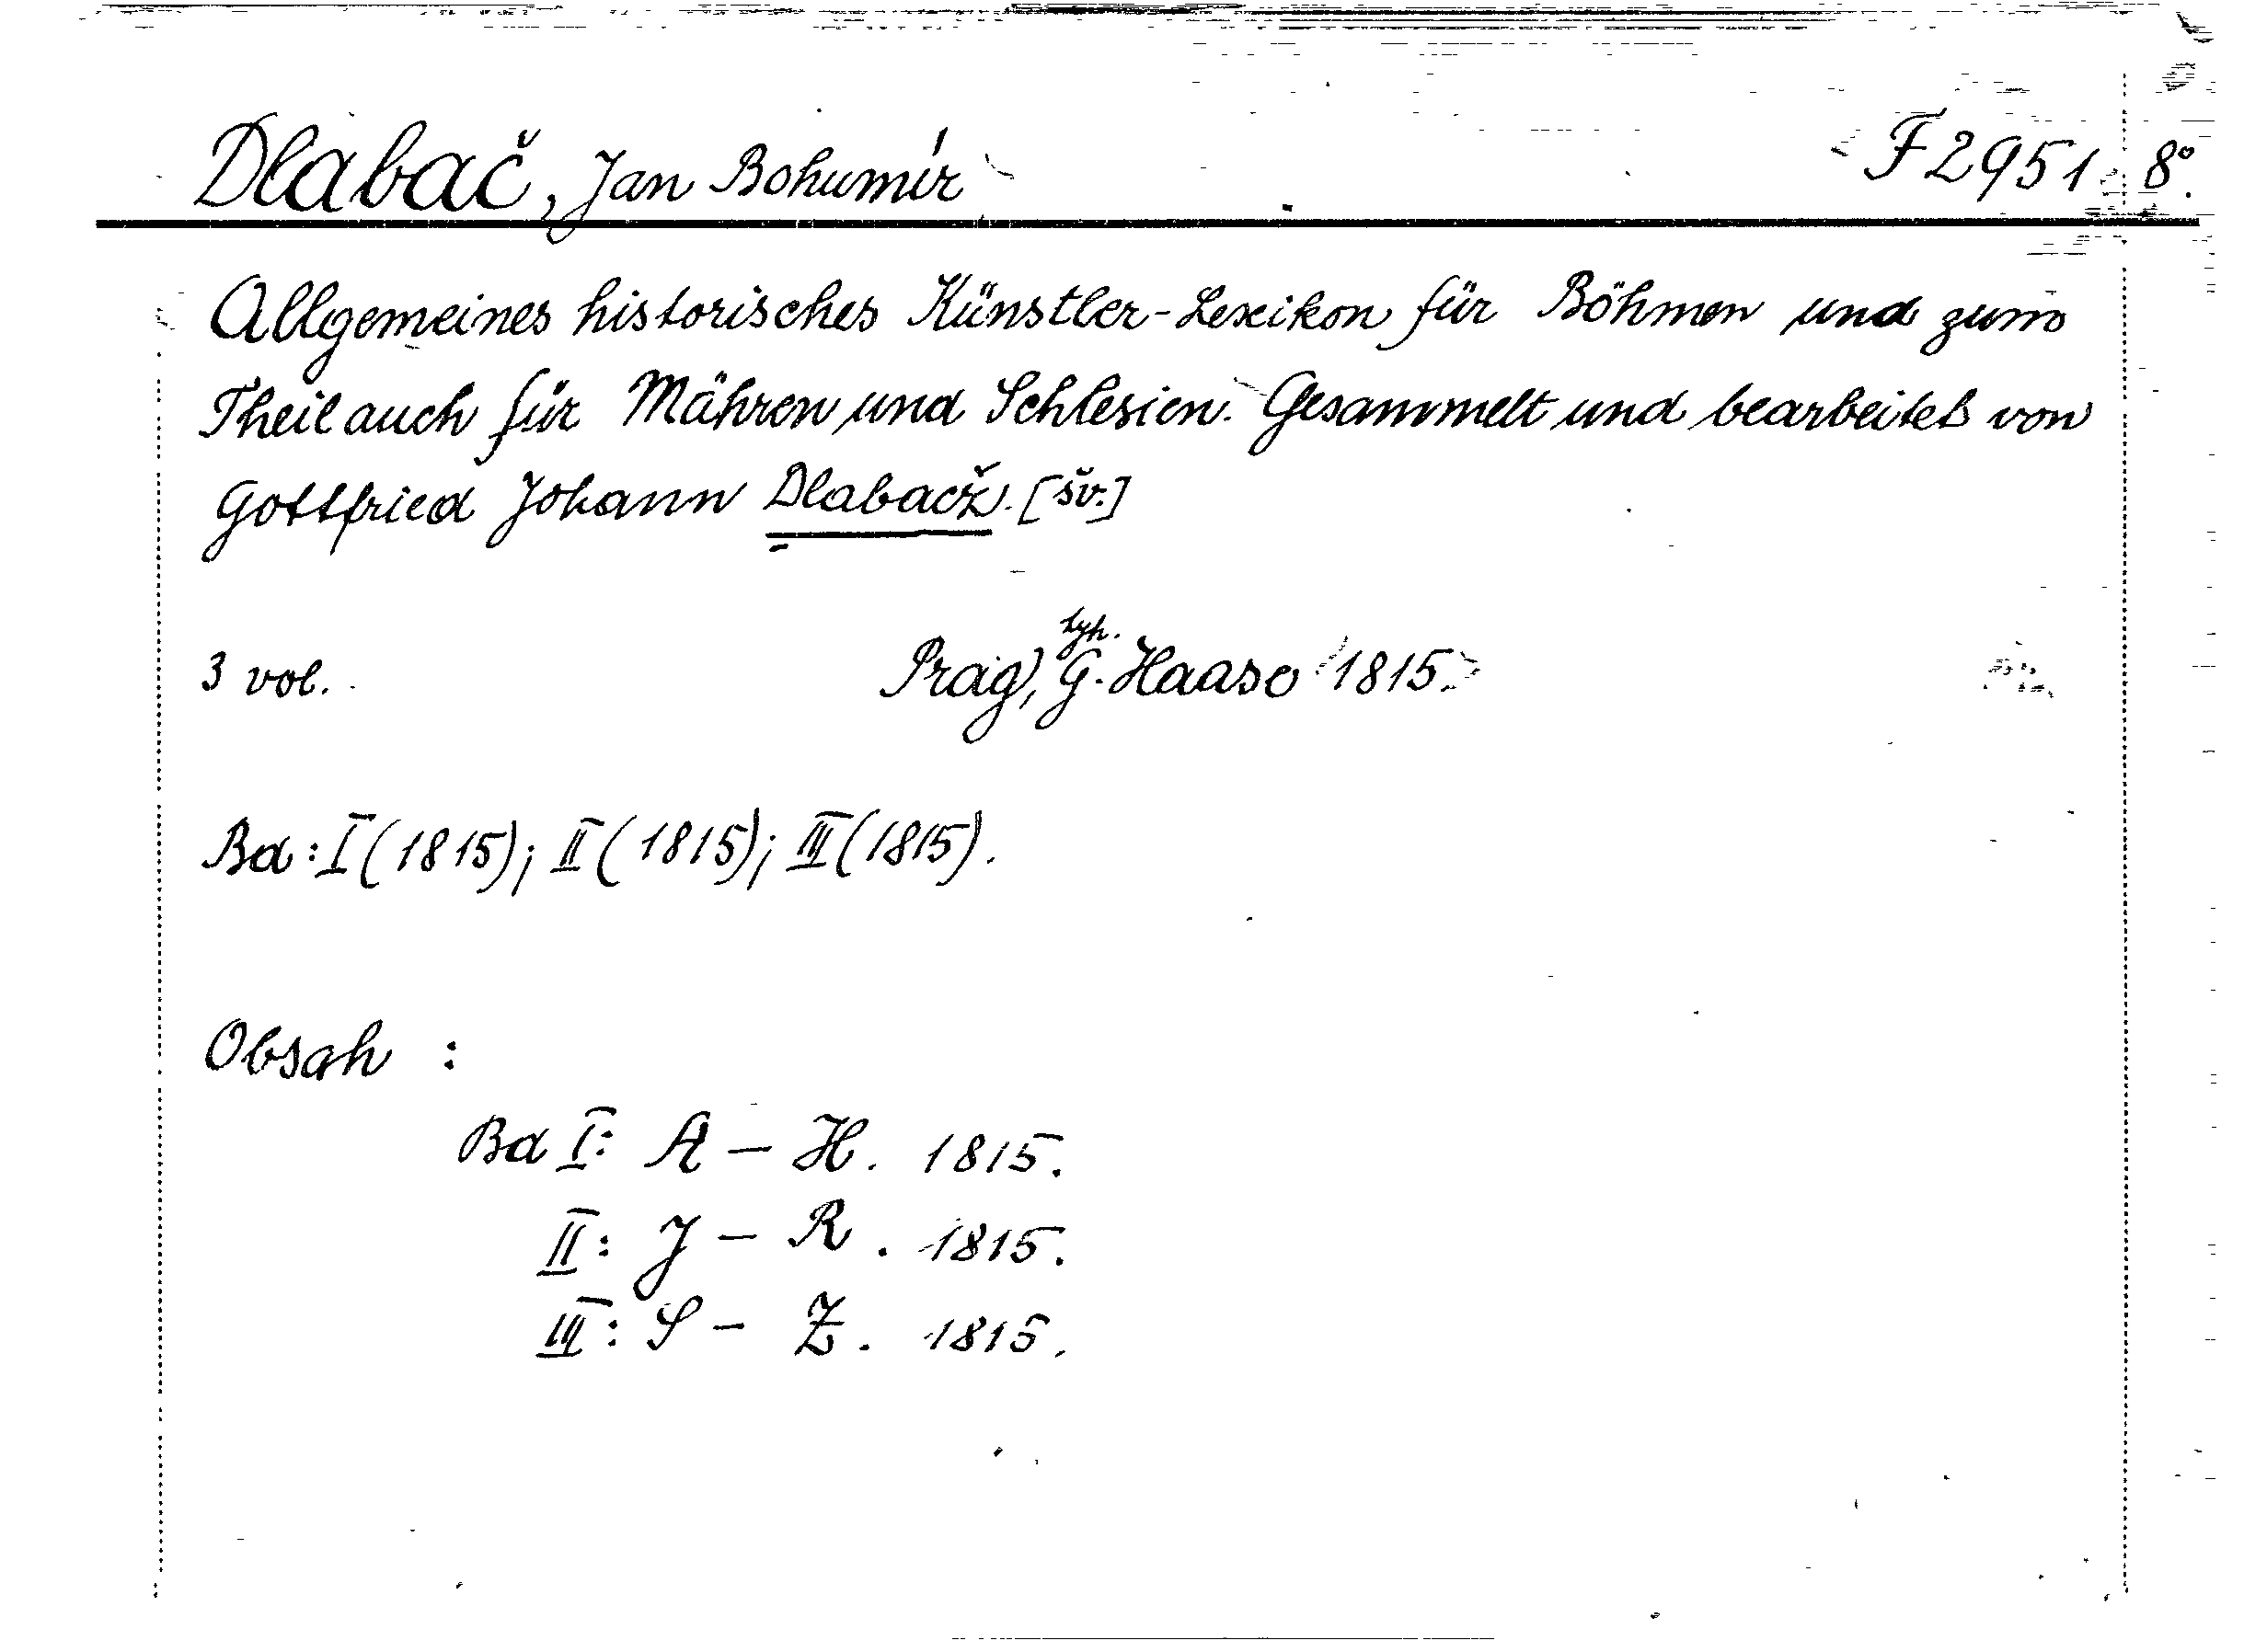 Dlabač, Jan Bohumír F 2951 8°.
Allgemeines historisches Künstler-Lexikon für Böhmen und zum
Theil auch für Mähren und Schlesien. Gesammelt und bearbeitet von
Gottfried Johann Dlabačž. [šv.]
3 vol. Prag, typ. G. Haase 1815.
Bd: I (1815); II (1815); III (1815).
Obsah :
Bd I: A – H. 1815.
II: J – R. 1815.
III: S – Z. 1815.